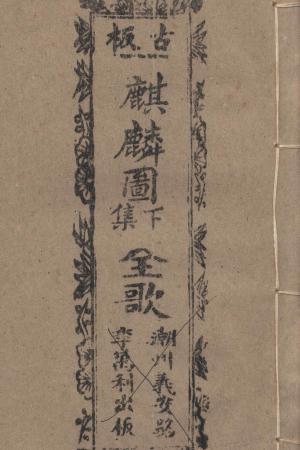 古板
麒麟圖
下集
全歌
潮州義安路
李萬利出板